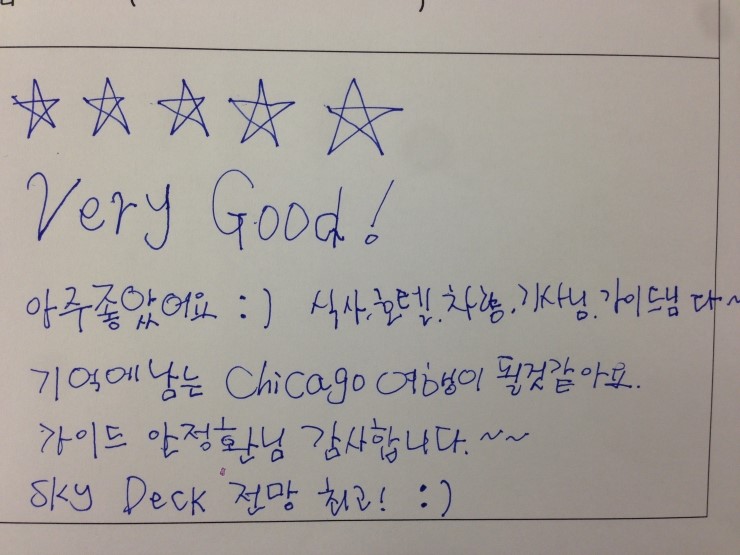 ☆ ☆ ☆ ☆ ☆
Very Good!
아주좋았어요 :) 식사,호텔,차량,기사님,가이드님 다~
기억에남는 Chicago 여행이 될것같아요.
가이드 안정환님 감사합니다.~~
Sky Deck 전망 최고! :)